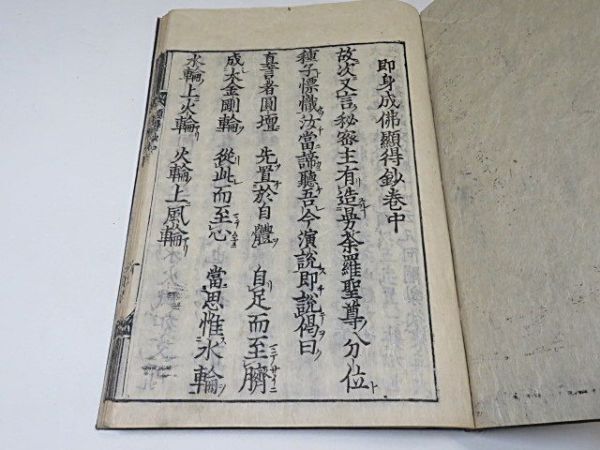 即身成佛顯得鈔卷中
故次又言秘密主有造曼荼羅聖尊分位
種子幖幟汝當諦聽吾今演說即說偈曰
真言者圓壇 先置於自體 自足而至臍
成大金剛輪 從此而至心 當思惟水輪
水輪上火輪 火輪上風輪